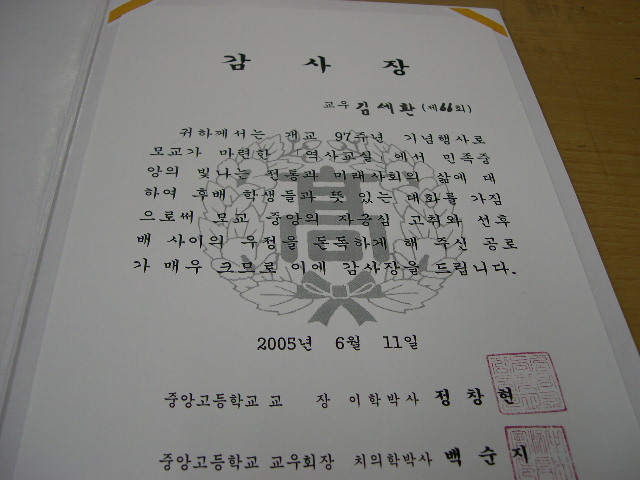 감 사 장
교우 김세환 (제66회)
귀하께서는 개교 97주년 기념행사로
모교가 마련한 「역사교실」에서 민족중
앙의 빛나는 전통과 미래사회의 삶에 대
하여 후배 학생들과 뜻 있는 대화를 가짐
으로써 모교 중앙의 자긍심 고취와 선후
배 사이의 우정을 돈독하게 해 주신 공로
가 매우 크므로 이에 감사장을 드립니다.
高
2005년 6월 11일
중앙고등학교 교 장 이학박사 정창현
중앙고등학교 교우회장 치의학박사 백순지